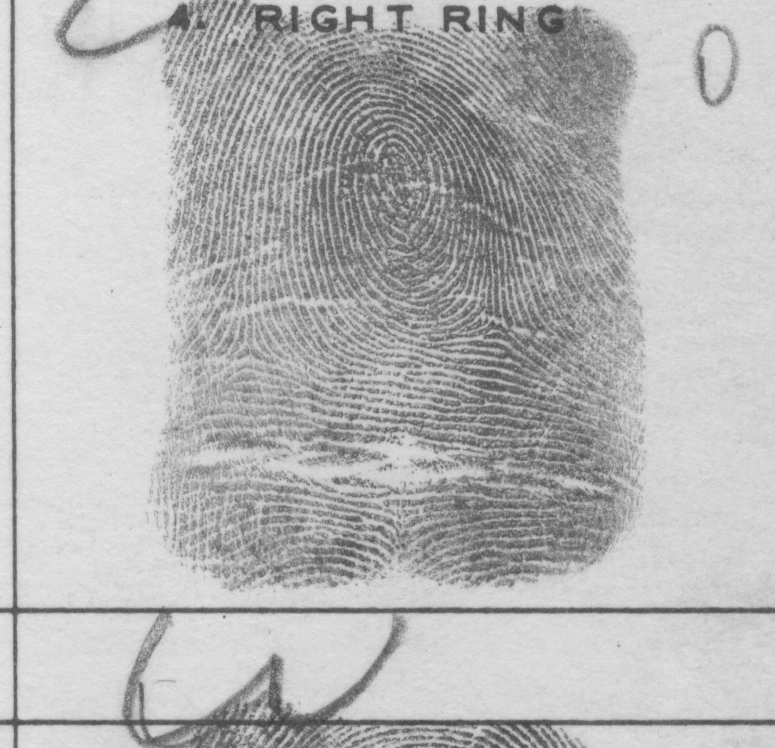 4. RIGHT RING
0
W